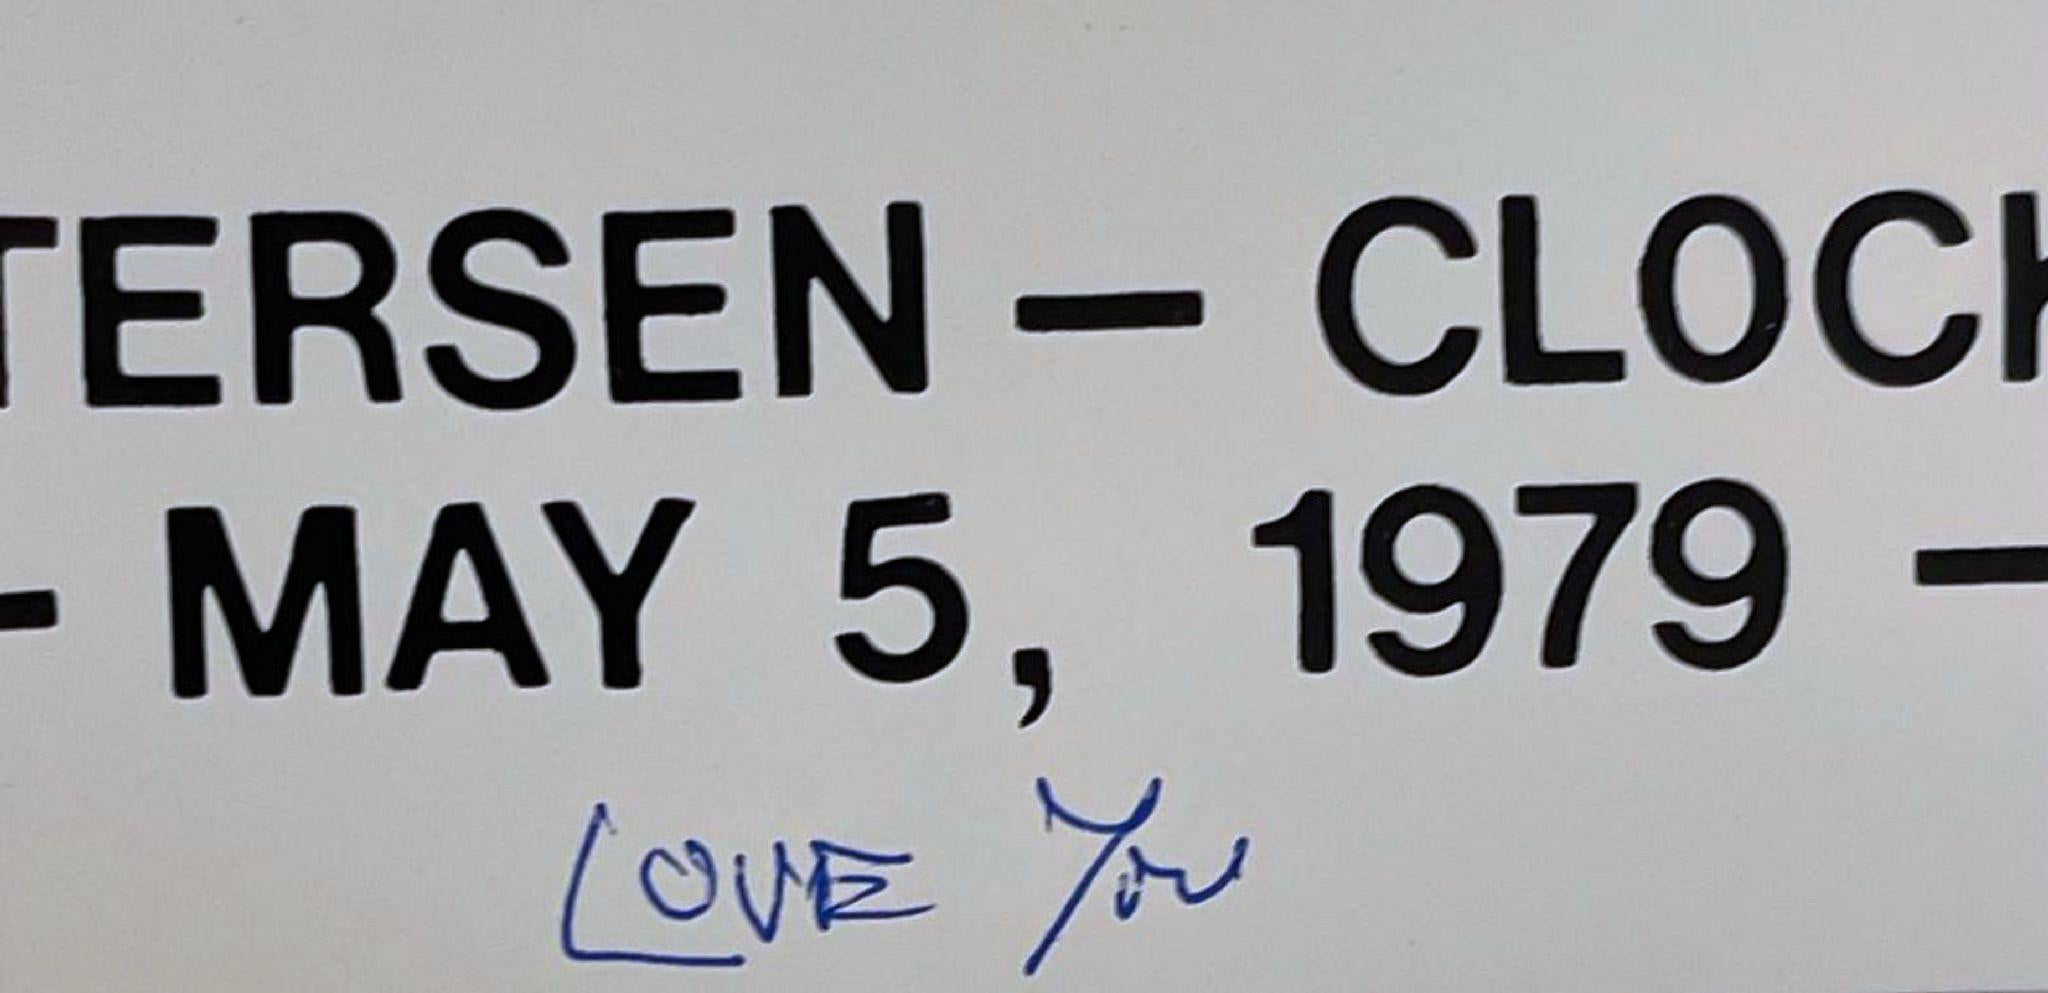 TERSEN — CLOCK
- MAY 5, 1979 —
LOVE YOU